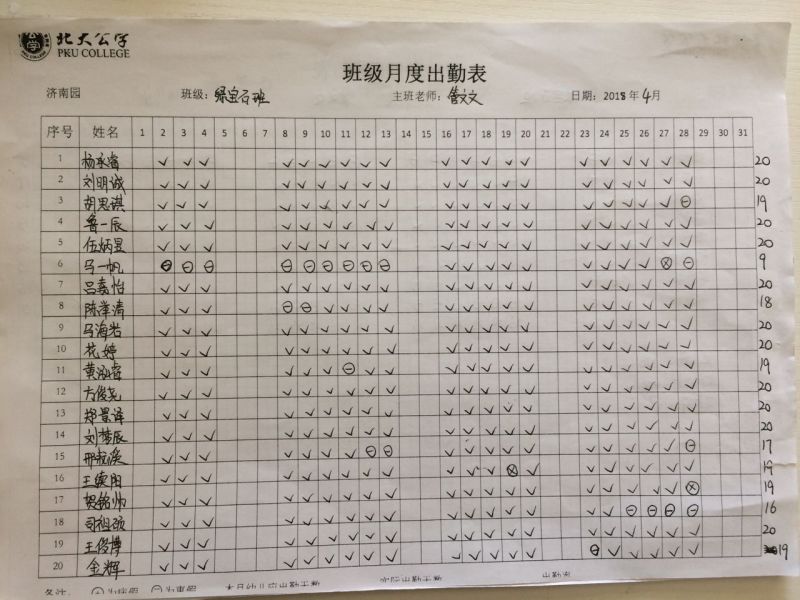 北大公学
PKU COLLEGE
班级月度出勤表
济南园 班级：绿宝石班 主班老师：管文文 日期：2018年4月
序号 姓名 1 2 3 4 5 6 7 8 9 10 11 12 13 14 15 16 17 18 19 20 21 22 23 24 25 26 27 28 29 30 31
1 杨承睿 ✓ ✓ ✓ ✓ ✓ ✓ ✓ ✓ ✓ ✓ ✓ ✓ ✓ ✓ ✓ ✓ ✓ ✓ ✓ ✓ 20
2 刘明诚 ✓ ✓ ✓ ✓ ✓ ✓ ✓ ✓ ✓ ✓ ✓ ✓ ✓ ✓ ✓ ✓ ✓ ✓ ✓ ✓ 20
3 胡思琪 ✓ ✓ ✓ ✓ ✓ ✓ ✓ ✓ ✓ ✓ ✓ ✓ ✓ ✓ ✓ ✓ ✓ ✓ ✓ ⊖ 19
4 鲁一辰 ✓ ✓ ✓ ✓ ✓ ✓ ✓ ✓ ✓ ✓ ✓ ✓ ✓ ✓ ✓ ✓ ✓ ✓ ✓ ✓ 20
5 伍炳昱 ✓ ✓ ✓ ✓ ✓ ✓ ✓ ✓ ✓ ✓ ✓ ✓ ✓ ✓ ✓ ✓ ✓ ✓ ✓ ✓ 20
6 马一帆 ⊖ ⊖ ⊖ ⊖ ⊖ ⊖ ⊖ ⊖ ⊖ ✓ ✓ ✓ ✓ ✓ ✓ ✓ ✓ ✓ ⊗ ⊖ 9
7 吕嘉怡 ✓ ✓ ✓ ✓ ✓ ✓ ✓ ✓ ✓ ✓ ✓ ✓ ✓ ✓ ✓ ✓ ✓ ✓ ✓ ✓ 20
8 陈泽清 ✓ ✓ ✓ ⊖ ⊖ ✓ ✓ ✓ ✓ ✓ ✓ ✓ ✓ ✓ ✓ ✓ ✓ ✓ ✓ ✓ 18
9 马海岩 ✓ ✓ ✓ ✓ ✓ ✓ ✓ ✓ ✓ ✓ ✓ ✓ ✓ ✓ ✓ ✓ ✓ ✓ ✓ ✓ 20
10 花婷 ✓ ✓ ✓ ✓ ✓ ✓ ✓ ✓ ✓ ✓ ✓ ✓ ✓ ✓ ✓ ✓ ✓ ✓ ✓ ✓ 20
11 黄泓睿 ✓ ✓ ✓ ✓ ✓ ✓ ⊖ ✓ ✓ ✓ ✓ ✓ ✓ ✓ ✓ ✓ ✓ ✓ ✓ ✓ 19
12 方俊尧 ✓ ✓ ✓ ✓ ✓ ✓ ✓ ✓ ✓ ✓ ✓ ✓ ✓ ✓ ✓ ✓ ✓ ✓ ✓ ✓ 20
13 郑景译 ✓ ✓ ✓ ✓ ✓ ✓ ✓ ✓ ✓ ✓ ✓ ✓ ✓ ✓ ✓ ✓ ✓ ✓ ✓ ✓ 20
14 刘梦辰 ✓ ✓ ✓ ✓ ✓ ✓ ✓ ✓ ✓ ✓ ✓ ✓ ✓ ✓ ✓ ✓ ✓ ✓ ✓ ✓ 20
15 ✓ ✓ ✓ ✓ ✓ ✓ ✓ ⊖ ⊖ ✓ ✓ ✓ ✓ ✓ ✓ ✓ ✓ ✓ ✓ ⊖ 17
16 王奕阳 ✓ ✓ ✓ ✓ ✓ ✓ ✓ ✓ ✓ ✓ ✓ ✓ ⊗ ✓ ✓ ✓ ✓ ✓ ✓ ✓ 19
17 贺铭帅 ✓ ✓ ✓ ✓ ✓ ✓ ✓ ✓ ✓ ✓ ✓ ✓ ✓ ✓ ✓ ✓ ✓ ✓ ✓ ⊗ 19
18 司祖硕 ✓ ✓ ✓ ✓ ✓ ✓ ✓ ✓ ✓ ✓ ✓ ✓ ✓ ✓ ✓ ✓ ⊖ ⊖ ⊖ ⊖ 16
19 王俊博 ✓ ✓ ✓ ✓ ✓ ✓ ✓ ✓ ✓ ✓ ✓ ✓ ✓ ✓ ✓ ✓ ✓ ✓ ✓ ✓ 20
20 金辉 ✓ ✓ ✓ ✓ ✓ ✓ ✓ ✓ ✓ ✓ ✓ ✓ ✓ ✓ ⊖ ✓ ✓ ✓ ✓ ✓ 19